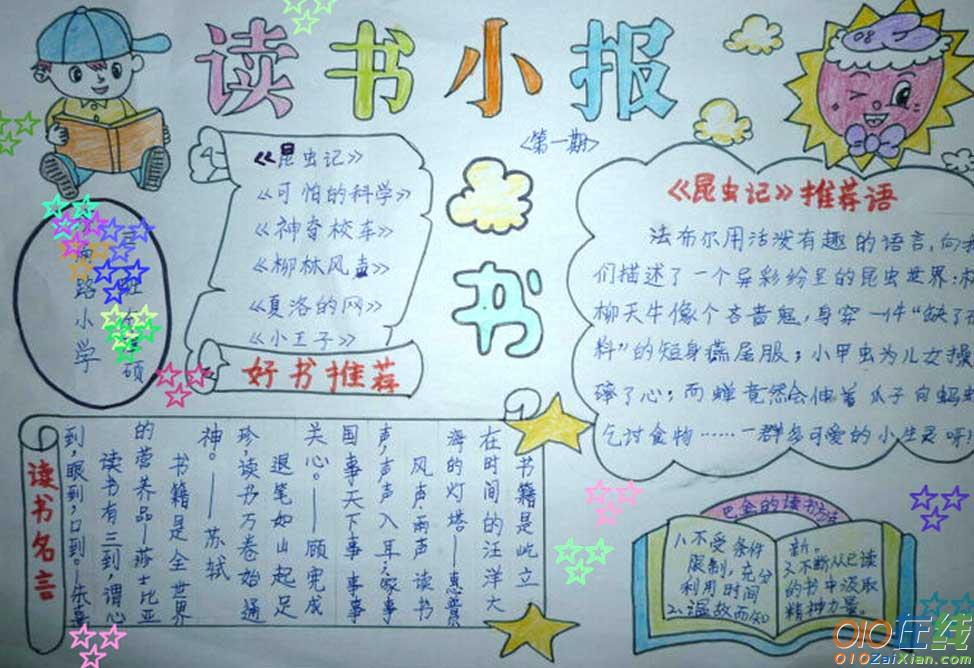 读书小报
<第一期>
《昆虫记》
《可怕的科学》
《神奇校车》
《柳林风声》
《夏洛的网》
《小王子》
好书推荐
书
《昆虫记》推荐语
法布尔用活泼有趣的语言,向我
们描述了一个异彩纷呈的昆虫世界:
柳天牛像个吝啬鬼,身穿一件“缺了布
料”的短身燕尾服;小甲虫为儿女操
碎了心;而蝉竟然会伸着爪子向蚂蚁
乞讨食物……一群多可爱的小生灵呀
路小学
硕
读书名言
书籍是屹立
在时间的汪洋大
海的灯塔——惠普
风声雨声读书
声,声声入耳;家事
国事天下事事事
关心。——顾宪成
退笔如山起足
珍,读书万卷始通
神。——苏轼
书籍是全世界
的营养品—莎士比亚
读书有三到,谓心
到,眼到,口到。—朱熹
巴金的读书方法
1.不受条件
限制,充分
利用时间
2.温故而知
新。
3.不断从已读
的书中汲取
精神力量。
08
010在线
010ZaiXian.com